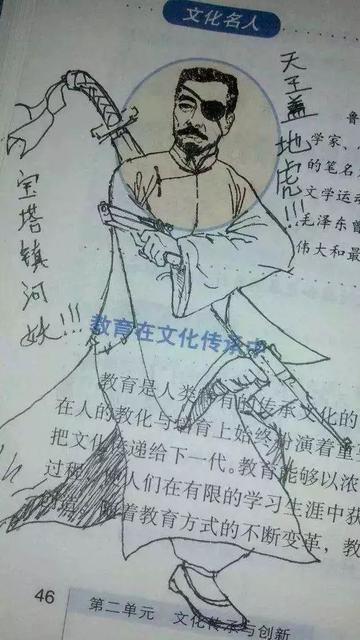 文化名人
天王盖地虎!!!
宝塔镇河妖!!!
鲁
学家、
的笔名
文学运动
毛泽东曾
伟大和最
教育在文化传承中
教育是人类 有的传承文化的
在人的教化与 育上始终扮演着重要
把文化传递给下一代。教育能够以浓
过程 人们在有限的学习生涯中获
着教育方式的不断变革,教
46
第二单元 文化传承与创新